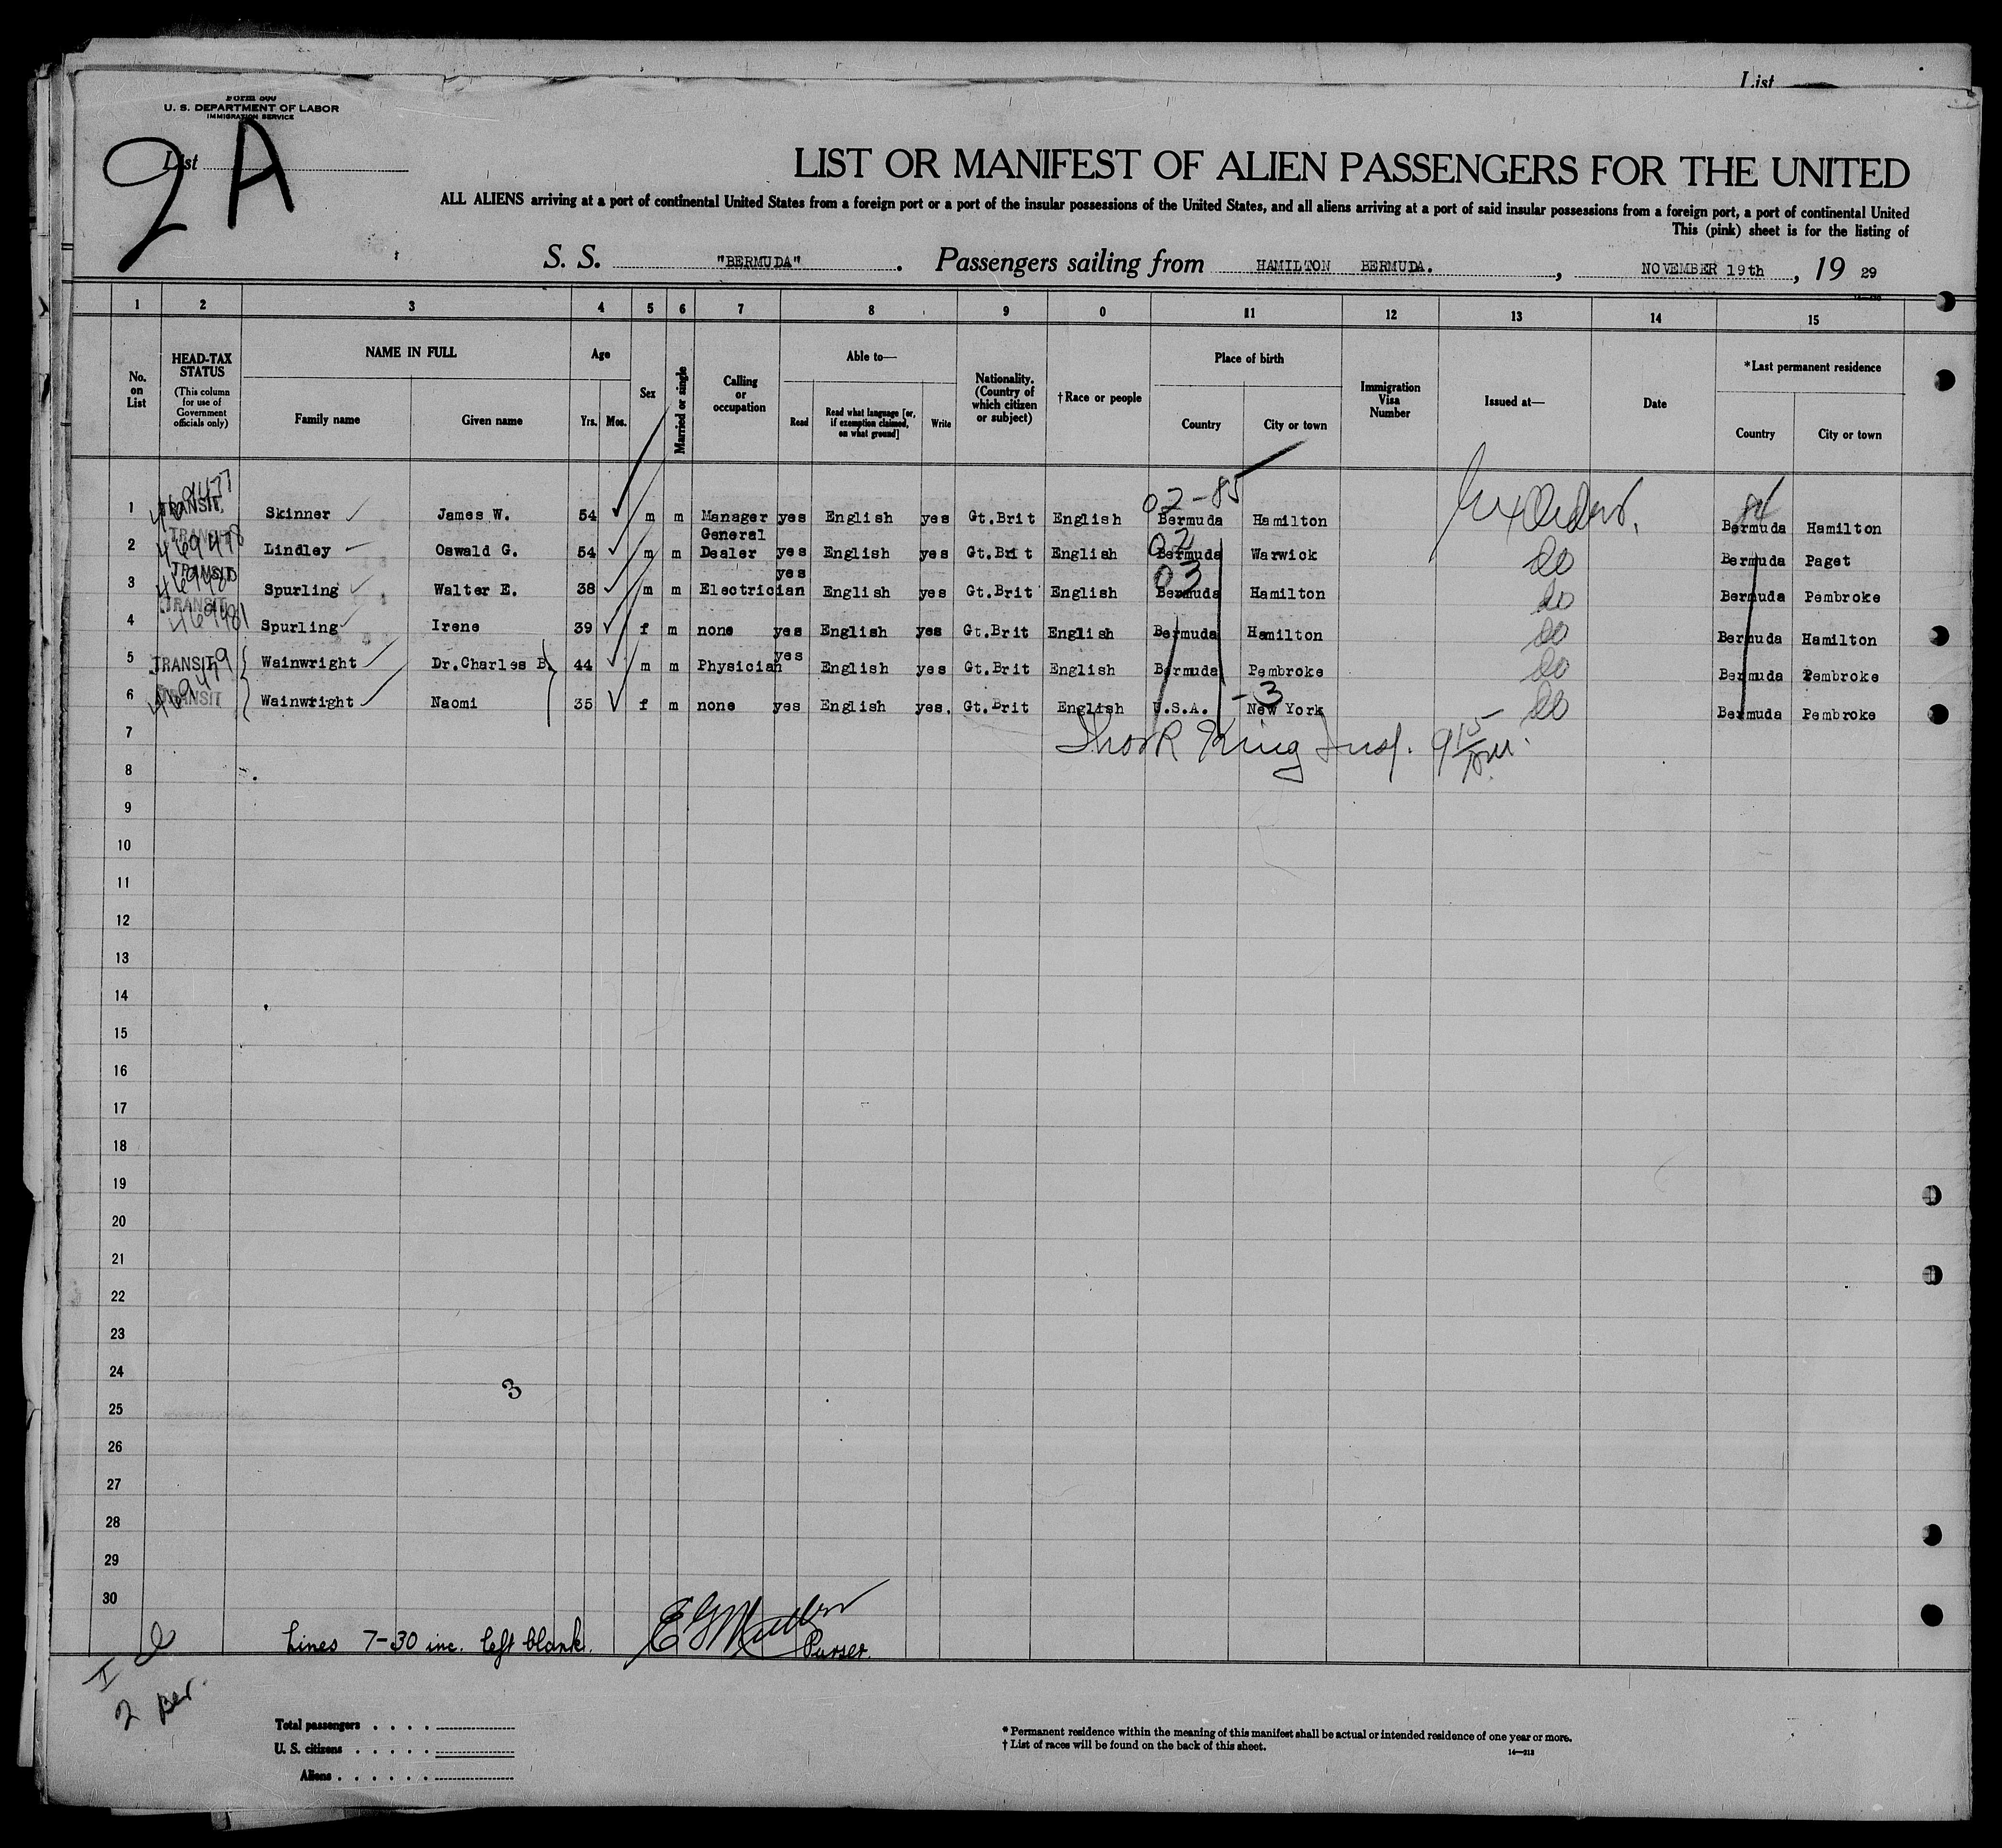 List
Form 500
U. S. DEPARTMENT OF LABOR
IMMIGRATION SERVICE
List 2 A
LIST OR MANIFEST OF ALIEN PASSENGERS FOR THE UNITED
ALL ALIENS arriving at a port of continental United States from a foreign port or a port of the insular possessions of the United States, and all aliens arriving at a port of said insular possessions from a foreign port, a port of continental United
This (pink) sheet is for the listing of
S. S. "BERMUDA". Passengers sailing from HAMILTON BERMUDA., NOVEMBER 19th, 19 29
1 2 3 4 5 6 7 8 9 0 11 12 13 14 15
No. on List
HEAD-TAX STATUS
(This column for use of Government officials only)
NAME IN FULL
Family name Given name
Age
Yrs. Mos.
Sex
Married or single
Calling or occupation
Able to—
Read Read what language [or, if exemption claimed, on what ground] Write
Nationality. (Country of which citizen or subject)
†Race or people
Place of birth
Country City or town
Immigration Visa Number
Issued at—
Date
*Last permanent residence
Country City or town
02-85
1 TRANSIT 469477 Skinner James W. 54 m m Manager yes English yes Gt.Brit English Bermuda Hamilton Bermuda Hamilton
02
2 TRANSIT 469478 Lindley Oswald G. 54 m m General Dealer yes English yes Gt.Brit English Bermuda Warwick do Bermuda Paget
03
3 TRANSIT 469480 Spurling Walter E. 38 m m Electrician yes English yes Gt.Brit English Bermuda Hamilton do Bermuda Pembroke
4 TRANSIT 469481 Spurling Irene 39 f m none yes English yes Gt.Brit English Bermuda Hamilton do Bermuda Hamilton
5 TRANSIT 469479 Wainwright Dr.Charles B. 44 m m Physician yes English yes Gt.Brit English Bermuda Pembroke do Bermuda Pembroke
-3
6 TRANSIT Wainwright Naomi 35 f m none yes English yes. Gt.Brit English U.S.A. New York do Bermuda Pembroke
7 King Insp. 9 15
8
9
10
11
12
13
14
15
16
17
18
19
20
21
22
23
24
3
25
26
27
28
29
30
Lines 7-30 inc. left blank.
Purser.
2 Ber.
Total passengers . . . .
U. S. citizens . . . . .
Aliens . . . . . .
* Permanent residence within the meaning of this manifest shall be actual or intended residence of one year or more.
† List of races will be found on the back of this sheet.
14—213